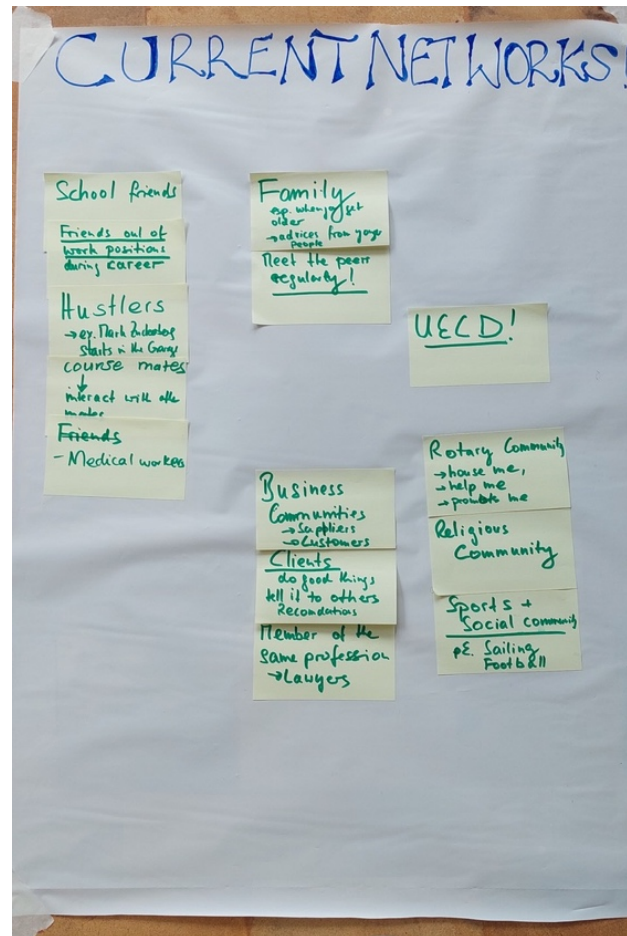 CURRENT NETWORKS!
School friends
Friends out of
work positions
during career
Hustlers
→ ex. Mark
starts in the Garage
course mates
↓
interact with
Friends
- Medical workers
Family
esp. when get
older
→ advices from
people
Meet the peers
regularly!
UECD!
Business
Communities
→ Suppliers
→ Customers
Clients
do good things
tell it to others
Member of the
same profession
→ Lawyers
Rotary Community
→ house me,
→ help me
→ promote me
Religious
Community
Sports +
Social community
pE. Sailing
Football